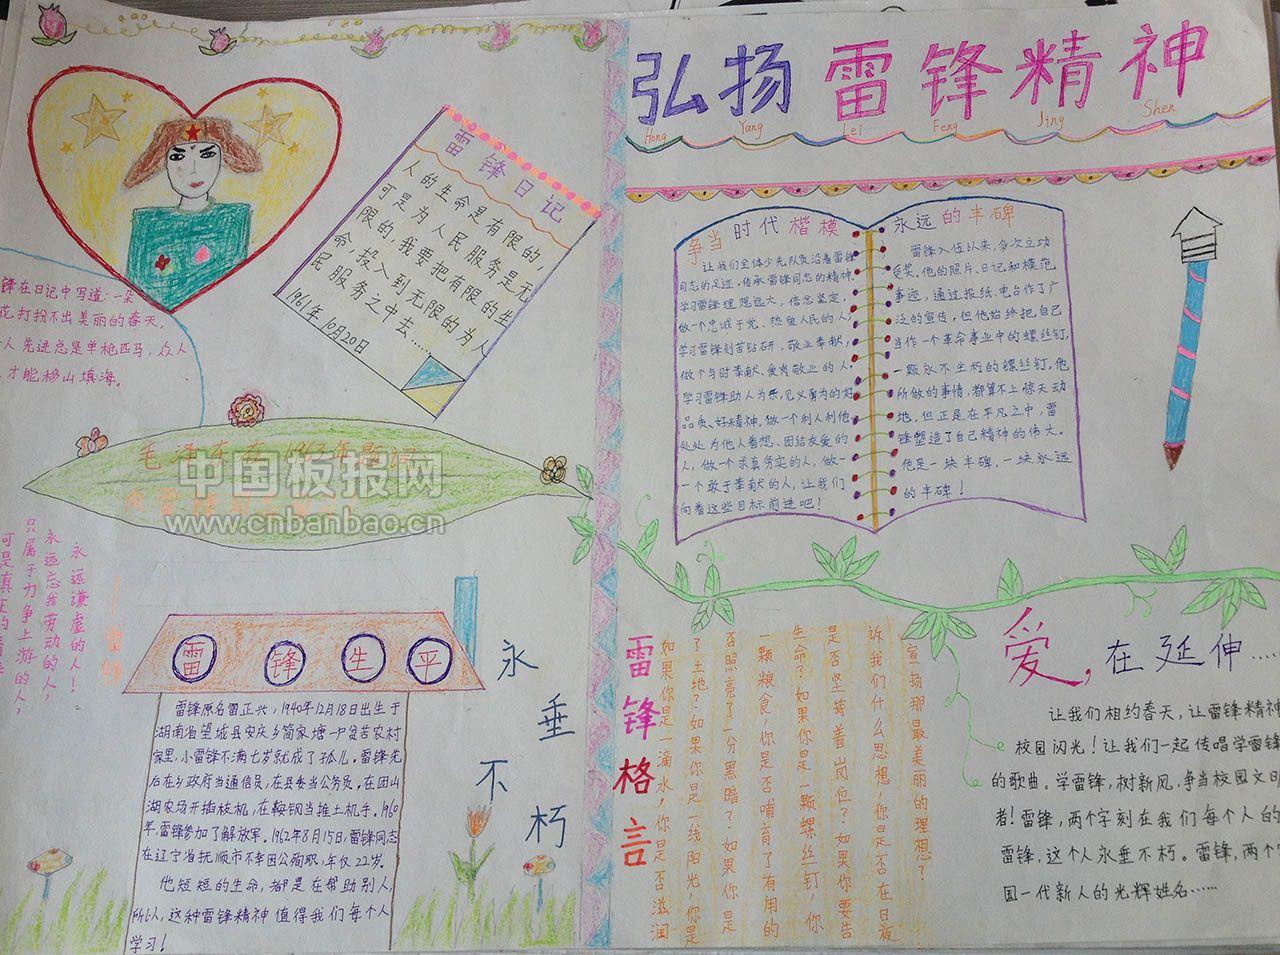 弘扬雷锋精神
Hong Yang Lei Feng Jing Shen
锋在日记中写道:一朵
花,打扮不出美丽的春天,
人先进总是单枪匹马,众人
才能移山填海。
雷锋日记
人的生命是有限的,
可是为人民服务是无
限的,我要把有限的生
命,投入到无限的为人
民服务之中去……
1961年10月20日
毛泽东在1963年题词
中国板报网
www.cnbanbao.cn
永远谦虚的人!
永远忘我劳动的人,
只属于力争上游的人,
雷锋生平
雷锋原名雷正兴,1940年12月18日出生于
湖南省望城县安庆乡简家塘一户贫苦农村
家里,小雷锋不满七岁就成了孤儿。雷锋先
后在乡政府当通信员,在县委当公务员,在团山
湖农场开拖拉机,在鞍钢当推土机手。1960
年,雷锋参加了解放军。1962年8月15日,雷锋同志
在辽宁省抚顺市不幸因公殉职,年仅22岁。
他短短的生命,都是在帮助别人,
所以,这种雷锋精神值得我们每个人
学习!
永垂不朽
争当时代楷模
让我们全体少先队员沿着雷锋
同志的足迹,传承雷锋同志的精神,
学习雷锋理想远大,信念坚定,
做一个忠诚于党、热爱人民的人;
学习雷锋刻苦钻研,敬业奉献,
做个与时奉献、爱岗敬业的人。
学习雷锋助人为乐,见义勇为的好
品质、好精神。做一个利人利他
处处为他人着想、团结友爱的
人,做一个求真务实的人,做一
一个敢于奉献的人,让我们
向着这些目标前进吧!
永远的丰碑
雷锋入伍以来,多次立功
受奖。他的照片、日记和模范
事迹,通过报纸、电台作了广
泛的宣传,但他始终把自己
当作一个革命事业中的螺丝钉,
一颗永不生朽的螺丝钉。他
所做的事情,都算不上惊天动
地,但正是在平凡之中,雷
锋塑造了自己精神的伟大。
他是一块丰碑,一块永远
的丰碑!
雷锋格言
如果你是一滴水,你是否滋润
了土地?如果你是一线阳光,你是
否照亮了一分黑暗?如果你是
一颗粮食,你是否哺育了有用的
生命?如果你是一颗螺丝钉,你
是否坚持着岗位?如果你要告
诉我们什么思想,你是否在日夜
宣扬那最美丽的理想?
爱,在延伸……
让我们相约春天,让雷锋精神
校园闪光!让我们一起传唱学雷锋
的歌曲。学雷锋,树新风,争当校园文明
者!雷锋,两个字刻在我们每个人的
雷锋,这个人永垂不朽。雷锋,两个字
国一代新人的光辉姓名……